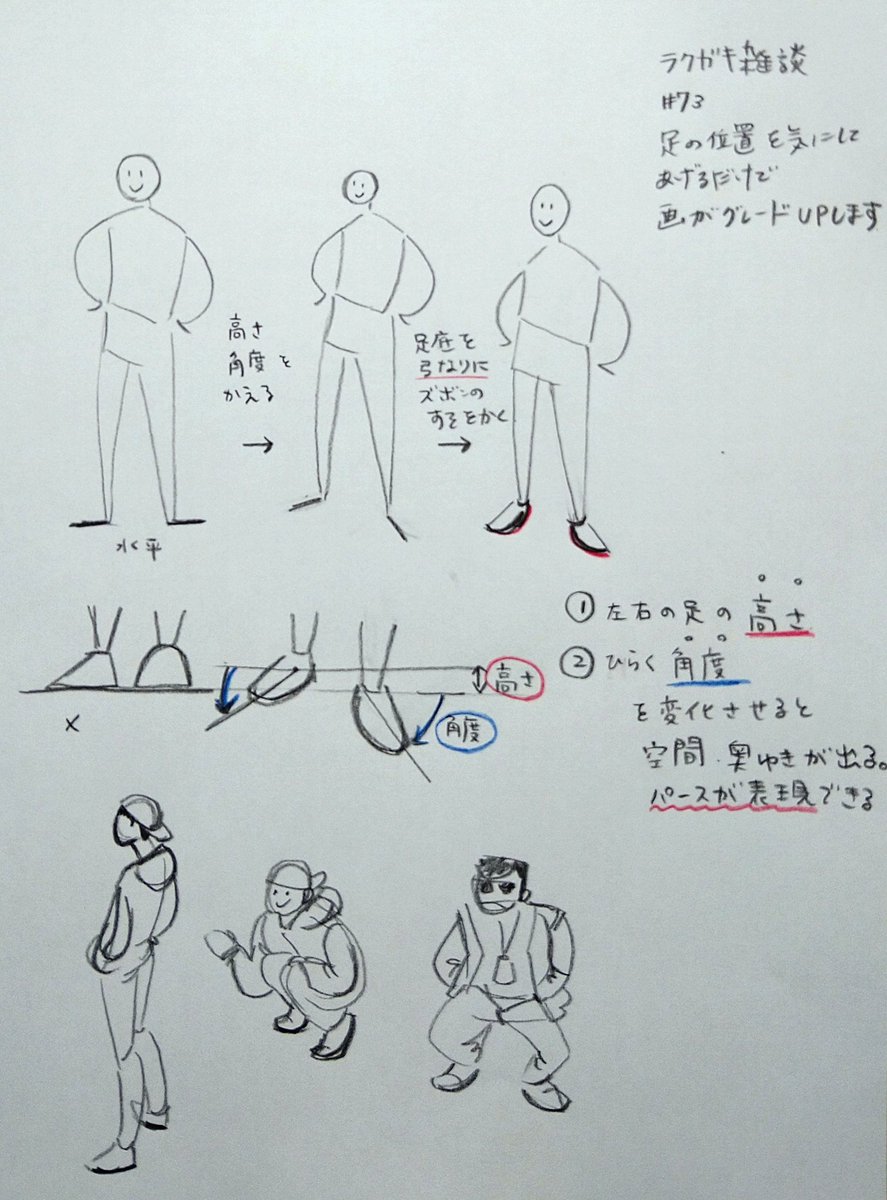 ラクガキ雑談
#73
足の位置を気にして
あげるだけで
画がグレードUPします
高さ
角度を
かえる
→
足底を
弓なりに
ズボンの
すそをかく
→
水平
×
高さ
角度
① 左右の足の高さ
② ひらく角度
を変化させると
空間・奥ゆきが出る。
パースが表現できる